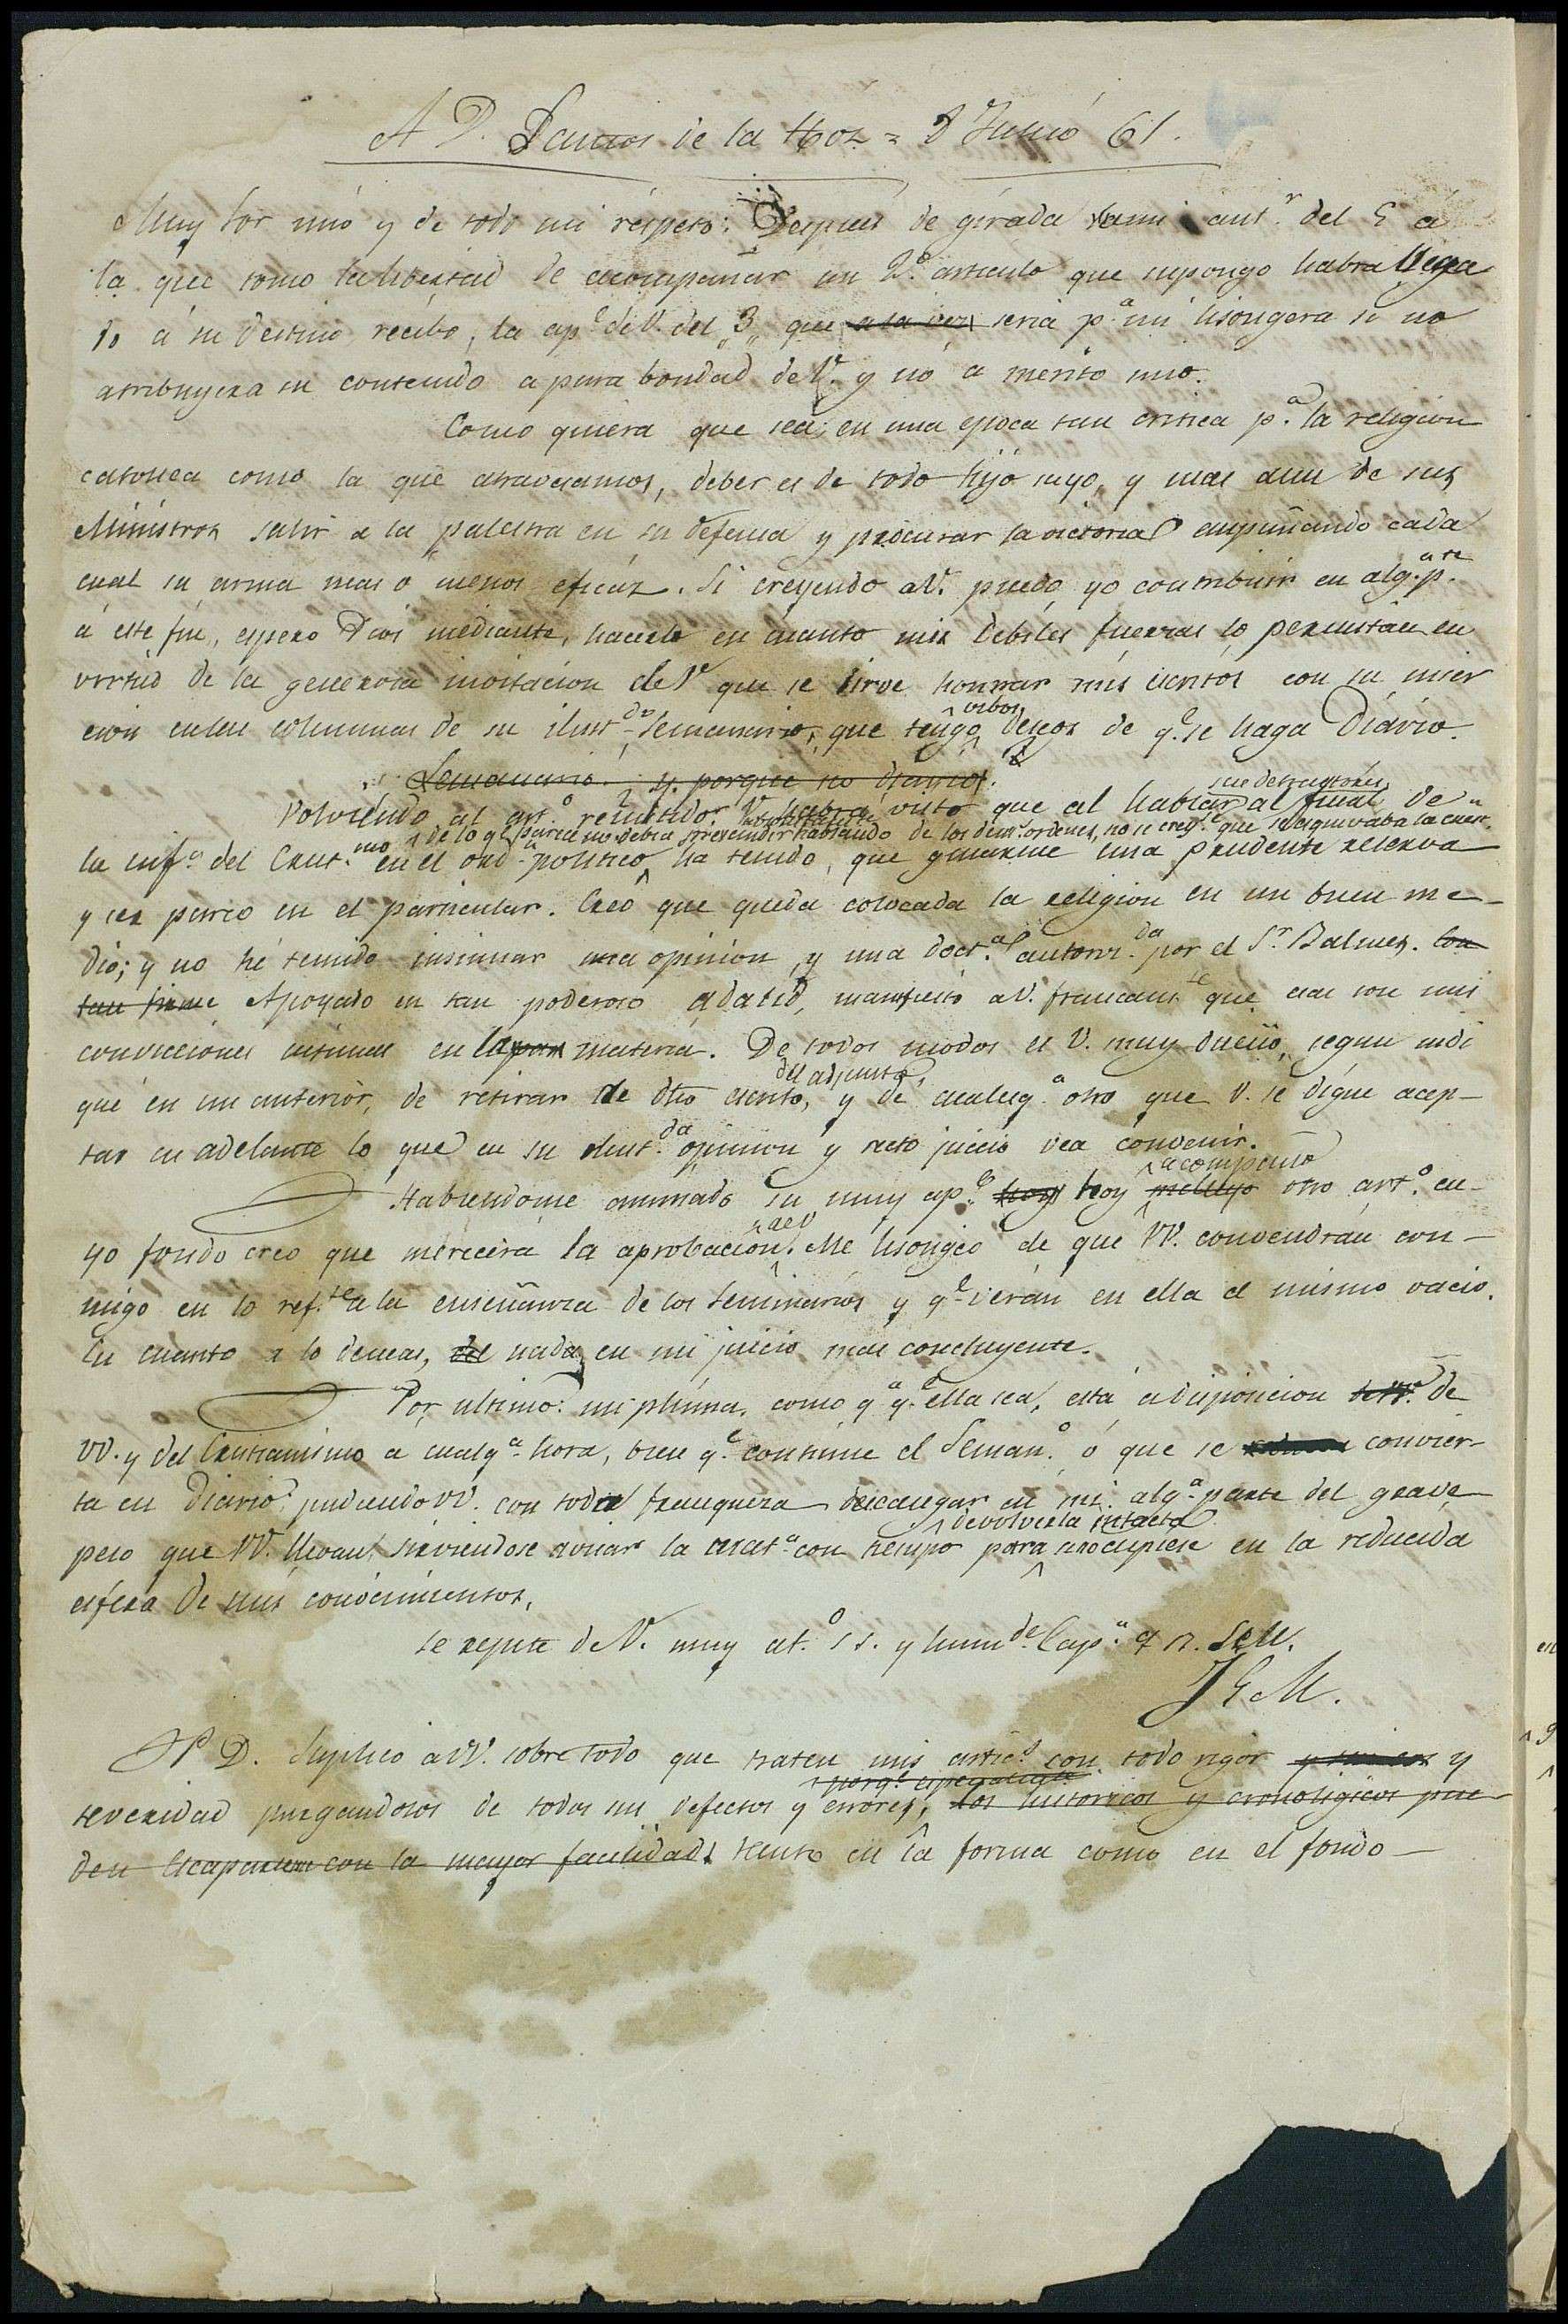 A D. Santos de la Hoz = 8 Junio 61.
Muy Sor mio y de todo mi respeto: Despues de girada la mi antr. del 5 á
la que tomo la libertad de acompañar un 2º articulo que supongo habra llega
do á su destino recibo, la ape. de V. del "3" que a la vez seria pa. mi lisongera si no
atribuyera su contenido a pura bondad de V. y nó a merito mio.
Como quiera que sea; en una epoca tan critica pa. la religion
catolica como la que atravesamos, deber es de todo hijo suyo, y mas aun de sus
Ministros salir a la palestra en su defensa y procurar la victoria empuñando cada
cual su arma mas o menos eficáz. Si creyendo a V. puedo yo contribuir en alga. pte.
á este fin, espero Dios mediante, hacerlo en cuanto mis debiles fuerzas lo permitan en
virtud de la generosa invitacion de V. que se sirve honrrar mis escritos con su inser
cion en las columnas de su ilustdo. Semanario, que tengo vivos deseos de qe. se haga Diário.
Semanario. y porque no diario?
Volviendo al arto. remitido: V. habra visto que al hablar al final de
sus demostrácn
de lo qe. parece no debia prescindir hablando de los demas ordenes, no se creyse. que se esquivaba la cuestn.
la infa. del Crist.mo en el ord. politico ha tenido, que guardar una prudente reserva
y ser parco en el particular. Creo que queda colocada la religion en un buen me-
dio; y no hé temido insinuar una opinion, y una docta. autorizda. por el Sr. Balmes. Con
tan firme Apoyado en tan poderoso adalid, manifiesto a V. francamte. que esas son mis
convicciones intimas en la materia. De todos modos es V. muy dueño, segun indi
qué en mi anterior, de retirar de dho escrito, del adjunto, y de cualesqa. otro que V. se digne acep-
tar en adelante lo que en su ilustda. opinion y recto juicio vea convenir.
Habiendome animado su muy ape. hoy hoy incluyo acompaño otro arto. cu-
yo fondo creo que merecerá la aprobacion de V. Me lisongeo de que VV. convendrán con-
migo en lo refte. a la enseñanza de los Seminarios y qe. verán en ella el mismo vacio.
En cuanto a lo demas, nada en mi juicio mas concluyente.
Por ultimo: mi pluma, como qa. qe. ella sea, está a disposicion de VV. de
VV. y del Cristianismo a cualqa. hora, bien qe. continúe el Semano. ó que se convier-
ta en Diario; pudiendo VV. con toda franqueza descargar en mi alga. parte del grave
peso que VV. llevan, sirviendose avisar la mata. con tiempo para devolverla intacta si no cupiese en la reducida
esfera de mis conocimientos.
Se repite de V. muy ato. S S. y humde. Capn. q. b. S. M.
J G M.
P D. Suplico a VV. sobre todo que traten mis artics. con todo rigor y
severidad purgandolos de todos sus defectos y errores, porqe. especialmte. los historicos y cronologicos pue-
den escaparseme con la mayor facilidad tanto en la forma como en el fondo—